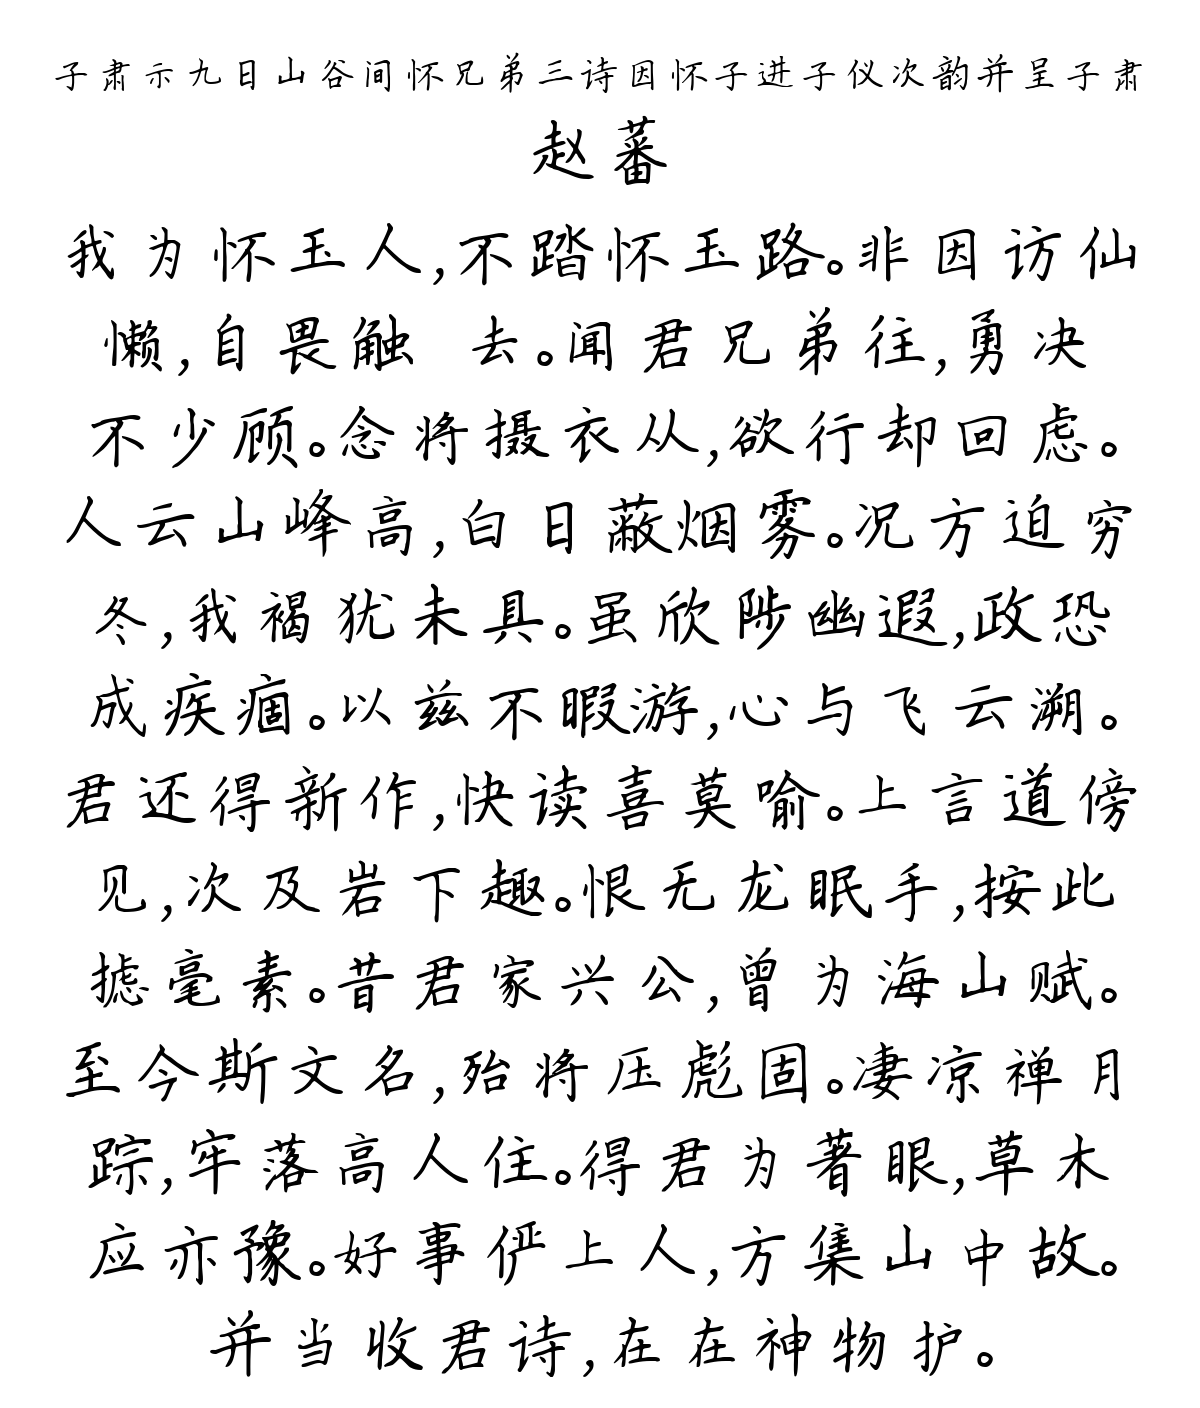 子肃示九日山谷间怀兄弟三诗因怀子进子仪次韵并呈子肃
赵蕃
我为怀玉人,不踏怀玉路。非因访仙
懒,自畏触 去。闻君兄弟往,勇决
不少顾。念将摄衣从,欲行却回虑。
人云山峰高,白日蔽烟雾。况方迫穷
冬,我褐犹未具。虽欣陟幽遐,政恐
成疾痼。以兹不暇游,心与飞云溯。
君还得新作,快读喜莫喻。上言道傍
见,次及岩下趣。恨无龙眠手,按此
摅毫素。昔君家兴公,曾为海山赋。
至今斯文名,殆将压彪固。凄凉禅月
踪,牢落高人住。得君为著眼,草木
应亦豫。好事俨上人,方集山中故。
并当收君诗,在在神物护。